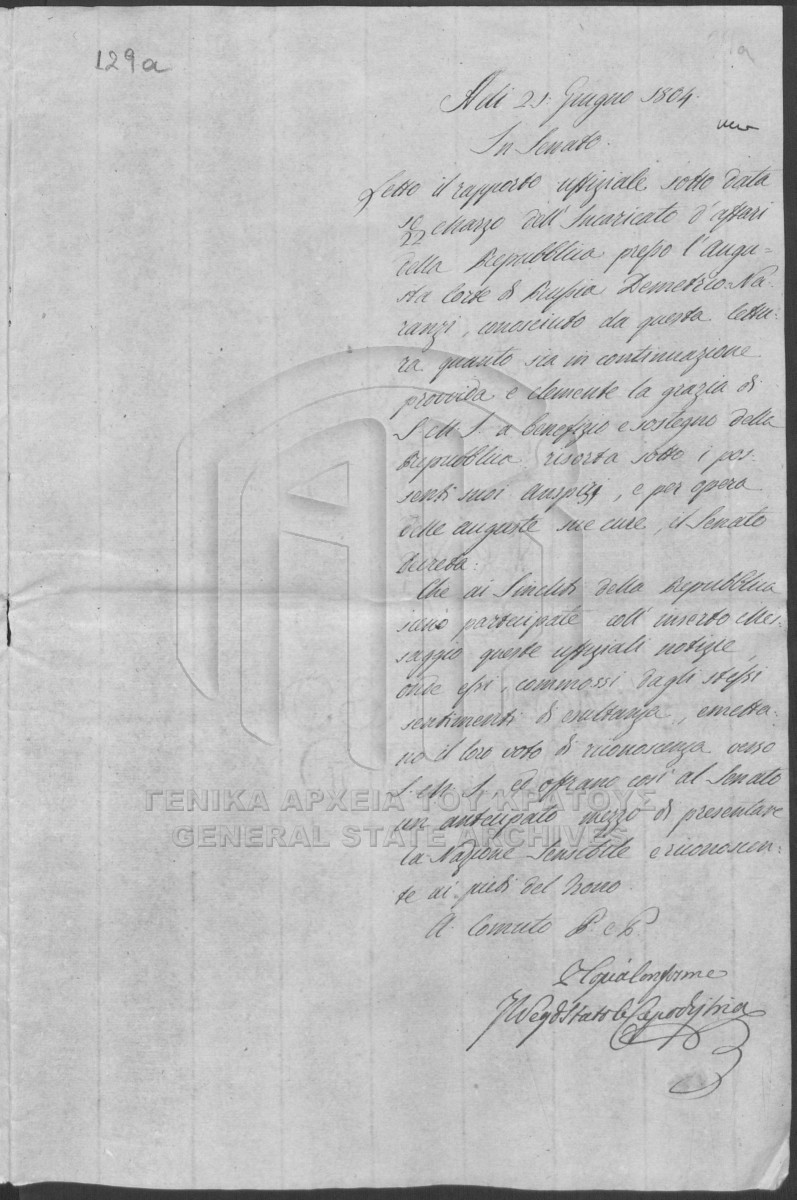 129a
Adi 21. Giugno 1804.
In Senato.
Letto il rapporto uffiziale sotto data
10/22 Marzo dell' Incaricato d'affari
della Repubblica presso l'Augu-
sta Corte di Russia Demetrio Na-
ranzi, conosciuto da questa lettu-
ra quanto sia in continuazione
provvida e clemente la grazia di
S. M. I. a benefizio e sostegno della
Repubblica risorta sotto i pos-
senti suoi auspizj, e per opera
delle auguste sue cure, il Senato
decreta:
Che ai Sincliti della Repubblica
siano partecipate coll' inserto Mes-
saggio queste uffiziali notizie,
onde essi, commossi dagli stessi
sentimenti di esultanza, emetta-
no il loro voto di riconoscenza verso
S. M. I. ed offrano così al Senato
un anticipato mezzo di presentare
la Nazione sensibile e riconoscen-
te ai piedi del Trono.
A. Comuto P. e P.
Copia Conforme
Il Seg. di Stato Capodistria
ΓΕΝΙΚΑ ΑΡΧΕΙΑ ΤΟΥ ΚΡΑΤΟΥΣ
GENERAL STATE ARCHIVES